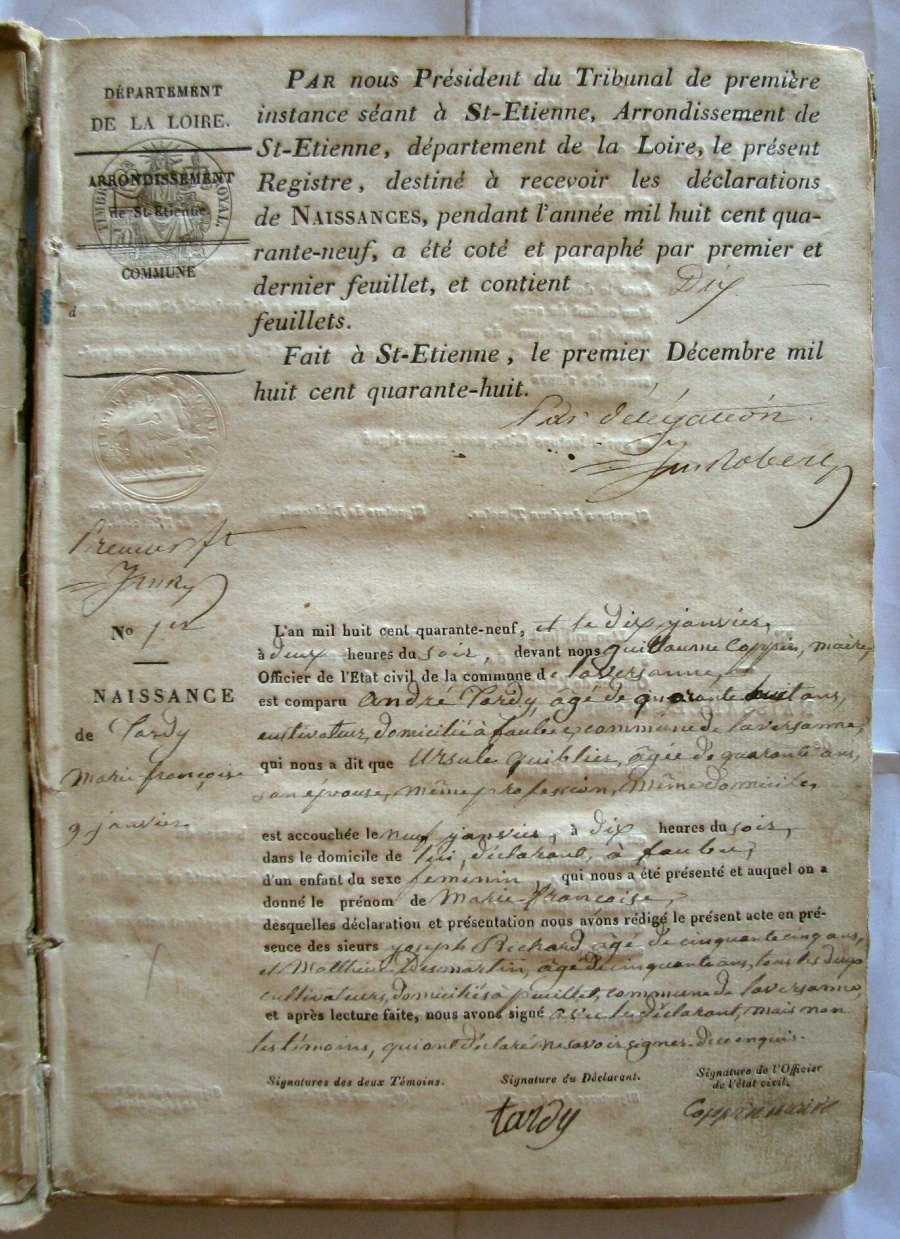 DÉPARTEMENT
DE LA LOIRE.
TIMBRE ROYAL.
70
ARRONDISSEMENT
de St-Etienne.
COMMUNE
d
PAR nous Président du Tribunal de première
instance séant à St-Etienne, Arrondissement de
St-Etienne, département de la Loire, le présent
Registre, destiné à recevoir les déclarations
de NAISSANCES, pendant l'année mil huit cent qua-
rante-neuf, a été coté et paraphé par premier et
dernier feuillet, et contient Dix
feuillets.
Fait à St-Etienne, le premier Décembre mil
huit cent quarante-huit.
Par délégation
Premier ft
No 1er
NAISSANCE
de Tardy
marie françoise
9 janvier
L'an mil huit cent quarante-neuf, et le dix janvier,
à deux heures du soir, devant nous guillaume Coppéré, maire,
Officier de l'Etat civil de la commune de laversanne,
est comparu andré Tardy, agé de quarante huit ans,
cultivateur, domicilié à faubec, commune de laversanne,
qui nous a dit que Ursule quiblier, agée de quarante ans,
son épouse, même profession, même domicile,
est accouchée le neuf janvier, à dix heures du soir,
dans le domicile de lui, déclarant, à
d'un enfant du sexe feminin, qui nous a été présenté et auquel on a
donné le prénom de Marie françoise,
desquelles déclaration et présentation nous avons rédigé le présent acte en pré-
seuce des sieurs joseph Richard, agé de cinquante cinq ans,
et Matthieu Desmartin, agé de cinquante ans, tous les deux
cultivateurs, domiciliés à puillet, commune de laversanne,
et après lecture faite, nous avons signé avec le déclarant, mais non
les témoins, qui ont déclaré ne savoir signer de ce enquis.
Signatures des deux Témoins.
Signature du Déclarent.
Signature de l'Officier
de l'état civil.
tardy
maire